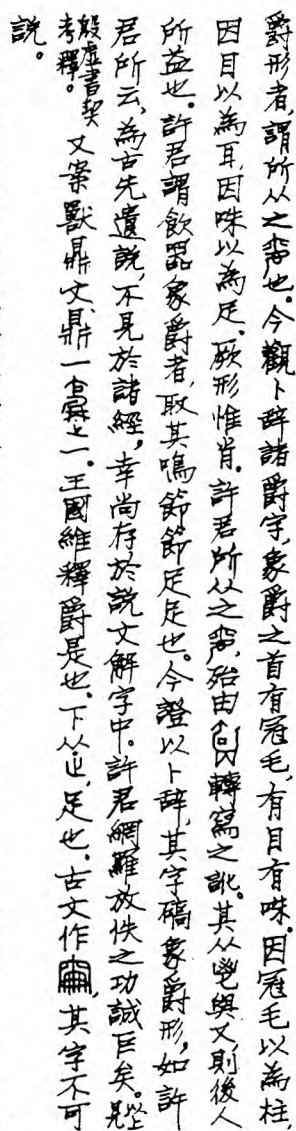 爵形者，謂所从之也。今觀卜辭諸爵字，象爵之首有冠毛，有目有咮。因冠毛以為柱，
因目以為耳，因咮以為足。厥形惟肖。許君所从之，殆由轉寫之訛。其从鬯與又則後人
所益也。許君謂飲器象爵者，取其鳴節節足足也。今證以卜辭，其字確象爵形，如許
君所云，為古先遺說，不見於諸經，幸尚存於說文解字中。許君網羅放佚之功誠巨矣。見
殷虛書契
考釋。 又案獸鼎文鼎一一。王國維釋爵是也。下从止，足也。古文作，其字不可
說。